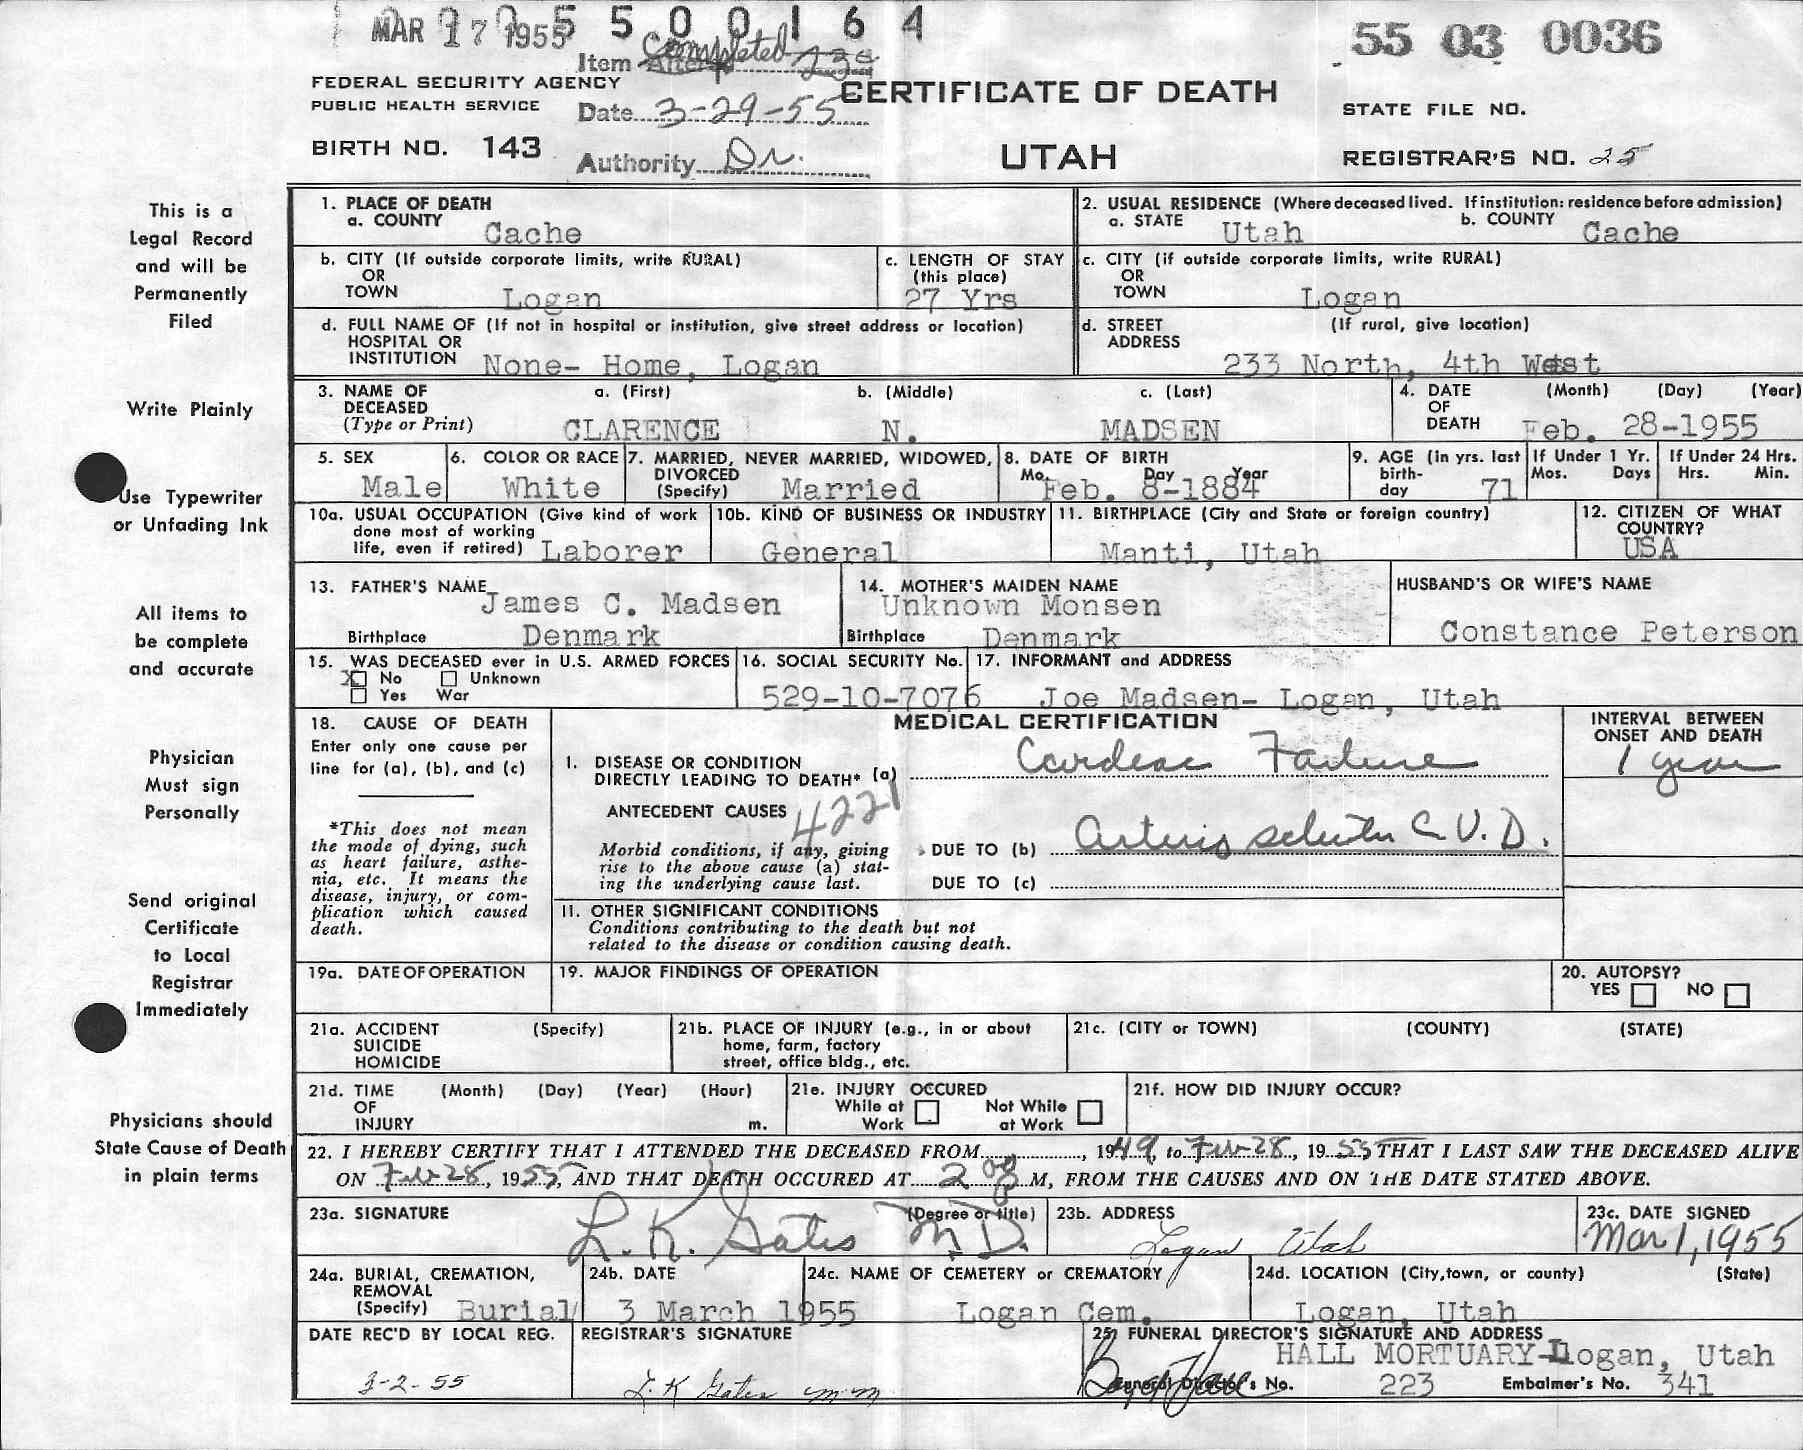 MAR 17 1955 5 5 0 0 1 6 4
55 03 0036
Item Completed 23a
FEDERAL SECURITY AGENCY
PUBLIC HEALTH SERVICE
Date 3-29-55
CERTIFICATE OF DEATH
STATE FILE NO.
BIRTH NO. 143
Authority Dr.
UTAH
REGISTRAR'S NO. 25
This is a
Legal Record
and will be
Permanently
Filed
Write Plainly
Use Typewriter
or Unfading Ink
All items to
be complete
and accurate
Physician
Must sign
Personally
Send original
Certificate
to Local
Registrar
Immediately
Physicians should
State Cause of Death
in plain terms
1. PLACE OF DEATH
a. COUNTY Cache
2. USUAL RESIDENCE (Where deceased lived. If institution: residence before admission)
a. STATE Utah b. COUNTY Cache
b. CITY (If outside corporate limits, write RURAL)
OR
TOWN Logan
c. LENGTH OF STAY
(this place)
27 Yrs
c. CITY (if outside corporate limits, write RURAL)
OR
TOWN Logan
d. FULL NAME OF (If not in hospital or institution, give street address or location)
HOSPITAL OR
INSTITUTION None- Home, Logan
d. STREET (If rural, give location)
ADDRESS
233 North, 4th West
3. NAME OF a. (First) b. (Middle) c. (Last)
DECEASED
(Type or Print) CLARENCE N. MADSEN
4. DATE (Month) (Day) (Year)
OF
DEATH Feb. 28-1955
5. SEX
Male
6. COLOR OR RACE
White
7. MARRIED, NEVER MARRIED, WIDOWED,
DIVORCED
(Specify) Married
8. DATE OF BIRTH
Mo. Day Year
Feb. 8-1884
9. AGE (in yrs. last
birth-
day 71
If Under 1 Yr.
Mos. Days
If Under 24 Hrs.
Hrs. Min.
10a. USUAL OCCUPATION (Give kind of work
done most of working
life, even if retired) Laborer
10b. KIND OF BUSINESS OR INDUSTRY
General
11. BIRTHPLACE (City and State or foreign country)
Manti, Utah
12. CITIZEN OF WHAT
COUNTRY?
USA
13. FATHER'S NAME
James C. Madsen
Birthplace Denmark
14. MOTHER'S MAIDEN NAME
Unknown Monsen
Birthplace Denmark
HUSBAND'S OR WIFE'S NAME
Constance Peterson
15. WAS DECEASED ever in U.S. ARMED FORCES
X No Unknown
Yes War
16. SOCIAL SECURITY No.
529-10-7076
17. INFORMANT and ADDRESS
Joe Madsen- Logan, Utah
18. CAUSE OF DEATH
Enter only one cause per
line for (a), (b), and (c)
*This does not mean
the mode of dying, such
as heart failure, asthe-
nia, etc. It means the
disease, injury, or com-
plication which caused
death.
MEDICAL CERTIFICATION
INTERVAL BETWEEN
ONSET AND DEATH
I. DISEASE OR CONDITION
DIRECTLY LEADING TO DEATH* (a) Cardiac Failure 1 year
ANTECEDENT CAUSES 4221
Morbid conditions, if any, giving
rise to the above cause (a) stat-
ing the underlying cause last.
DUE TO (b) C.V.D.
DUE TO (c)
II. OTHER SIGNIFICANT CONDITIONS
Conditions contributing to the death but not
related to the disease or condition causing death.
19a. DATE OF OPERATION
19. MAJOR FINDINGS OF OPERATION
20. AUTOPSY?
YES NO
21a. ACCIDENT (Specify)
SUICIDE
HOMICIDE
21b. PLACE OF INJURY (e.g., in or about
home, farm, factory
street, office bldg., etc.
21c. (CITY or TOWN) (COUNTY) (STATE)
21d. TIME (Month) (Day) (Year) (Hour)
OF
INJURY m.
21e. INJURY OCCURED
While at Work Not While at Work
21f. HOW DID INJURY OCCUR?
22. I HEREBY CERTIFY THAT I ATTENDED THE DECEASED FROM, 1949, to Feb 28, 1955 THAT I LAST SAW THE DECEASED ALIVE
ON Feb 28, 1955, AND THAT DEATH OCCURED AT 2 M, FROM THE CAUSES AND ON THE DATE STATED ABOVE.
23a. SIGNATURE (Degree or title)
L. K. Gates M.D.
23b. ADDRESS
Logan Utah
23c. DATE SIGNED
Mar 1, 1955
24a. BURIAL, CREMATION,
REMOVAL
(Specify) Burial
24b. DATE
3 March 1955
24c. NAME OF CEMETERY or CREMATORY
Logan Cem.
24d. LOCATION (City, town, or county) (State)
Logan, Utah
DATE REC'D BY LOCAL REG.
3-2-55
REGISTRAR'S SIGNATURE
L. K Gates
25. FUNERAL DIRECTOR'S SIGNATURE AND ADDRESS
HALL MORTUARY-Logan, Utah
Funeral Director's No. 223 Embalmer's No. 341